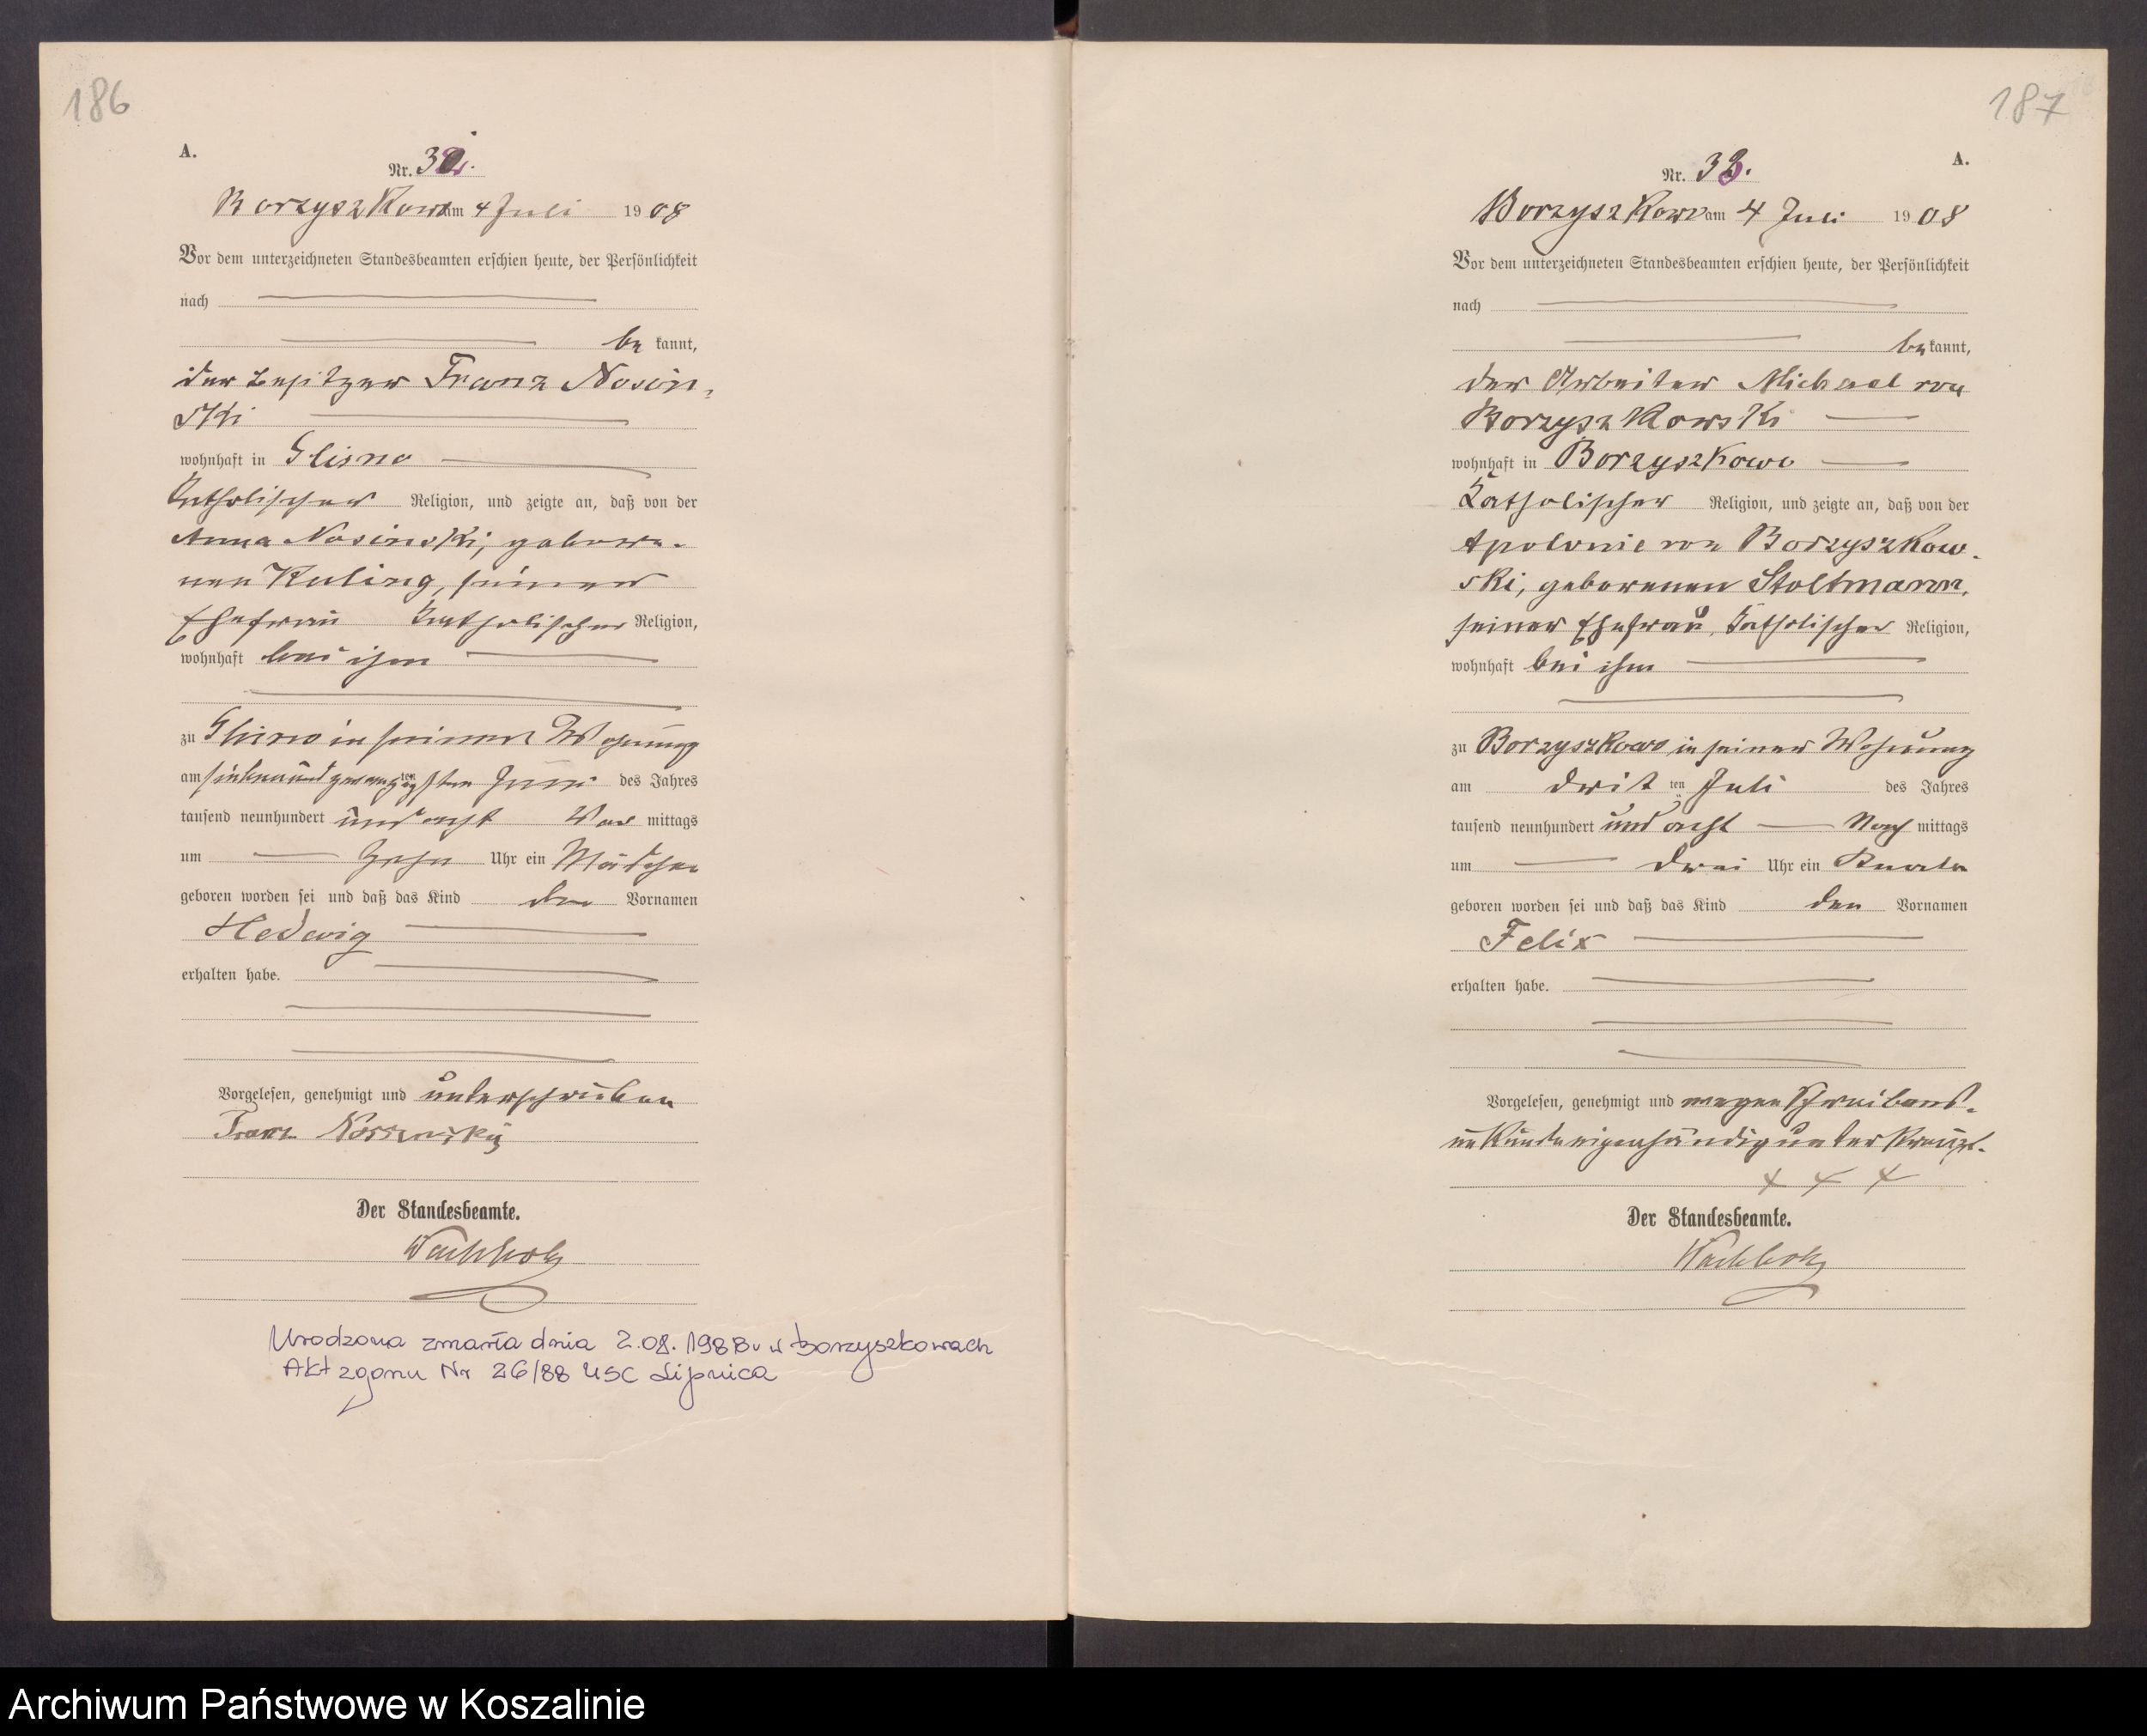 186
A.
Nr. 32.
Borzyszkowo am 4 Juli 1908
Vor dem unterzeichneten Standesbeamten erschien heute, der Persönlichkeit
nach
be kannt,
der Besitzer Franz Nosin-
ski
wohnhaft in Glisno
katholischer Religion, und zeigte an, daß von der
Anna Nosinski, gebore-
nen Kuling, seiner
Ehefrau katholischer Religion,
wohnhaft bei ihm
zu Glisno in seiner Wohnung
am siebenundzwanzigsten ten Juni des Jahres
tausend neunhundert und acht Vor mittags
um zehn Uhr ein Mädchen
geboren worden sei und daß das Kind den Vornamen
Hedwig
erhalten habe.
Vorgelesen, genehmigt und unterschrieben
Franz
Der Standesbeamte.
Wachholz
Urodzona zmarła dnia 2.08.1988 w Borzyszkowach
Akt zgonu Nr 26/88 USC Lipnica
187
A.
Nr. 33.
Borzyszkowo am 4 Juli 1908
Vor dem unterzeichneten Standesbeamten erschien heute, der Persönlichkeit
nach
be kannt,
der Arbeiter Michael von
Borzyszkowski
wohnhaft in Borzyszkowo
katholischer Religion, und zeigte an, daß von der
Apolonie von Borzyszkow-
ski, geborenen Stoltmann,
seiner Ehefrau, katholischer Religion,
wohnhaft bei ihm
zu Borzyszkowo in seiner Wohnung
am drit ten Juli des Jahres
tausend neunhundert und acht Nach mittags
um drei Uhr ein Knabe
geboren worden sei und daß das Kind den Vornamen
Felix
erhalten habe.
Vorgelesen, genehmigt und wegen Schreibens-
unkunde eigenhändig unterkreuzt.
+ + +
Der Standesbeamte.
Wachholz
Archiwum Państwowe w Koszalinie